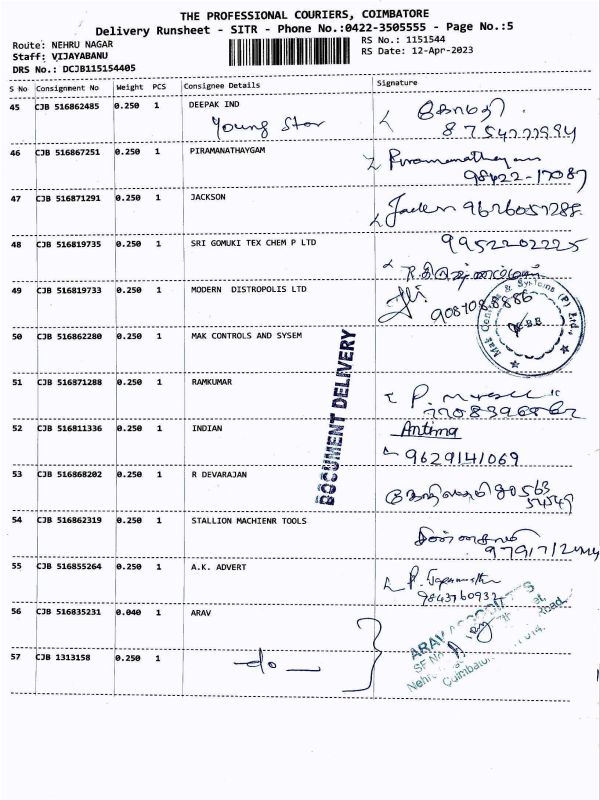 THE PROFESSIONAL COURIERS, COIMBATORE
Delivery Runsheet - SITR - Phone No.:0422-3505555 - Page No.:5
Route: NEHRU NAGAR
RS No.: 1151544
Staff: VIJAYABANU
RS Date: 12-Apr-2023
DRS No.: DCJB115154405
S No Consignment No Weight PCS Consignee Details Signature
45 CJB 516862485 0.250 1 DEEPAK IND
Young Star
கோமதி
46 CJB 516867251 0.250 1 PIRAMANATHAYGAM
Piramanathaygam
98422-17087
47 CJB 516871291 0.250 1 JACKSON
48 CJB 516819735 0.250 1 SRI GOMUKI TEX CHEM P LTD
9952202225
49 CJB 516819733 0.250 1 MODERN DISTROPOLIS LTD
9087088886
50 CJB 516862280 0.250 1 MAK CONTROLS AND SYSEM
Mak Controls & Systems (P) Ltd.,
DOCUMENT DELIVERY
51 CJB 516871288 0.250 1 RAMKUMAR
52 CJB 516811336 0.250 1 INDIAN
Antima
9629141069
53 CJB 516868202 0.250 1 R DEVARAJAN
54 CJB 516862319 0.250 1 STALLION MACHIENR TOOLS
55 CJB 516855264 0.250 1 A.K. ADVERT
9843760932
56 CJB 516835231 0.040 1 ARAV
ARAV ASSOCIATES
57 CJB 1313158 0.250 1
-do-